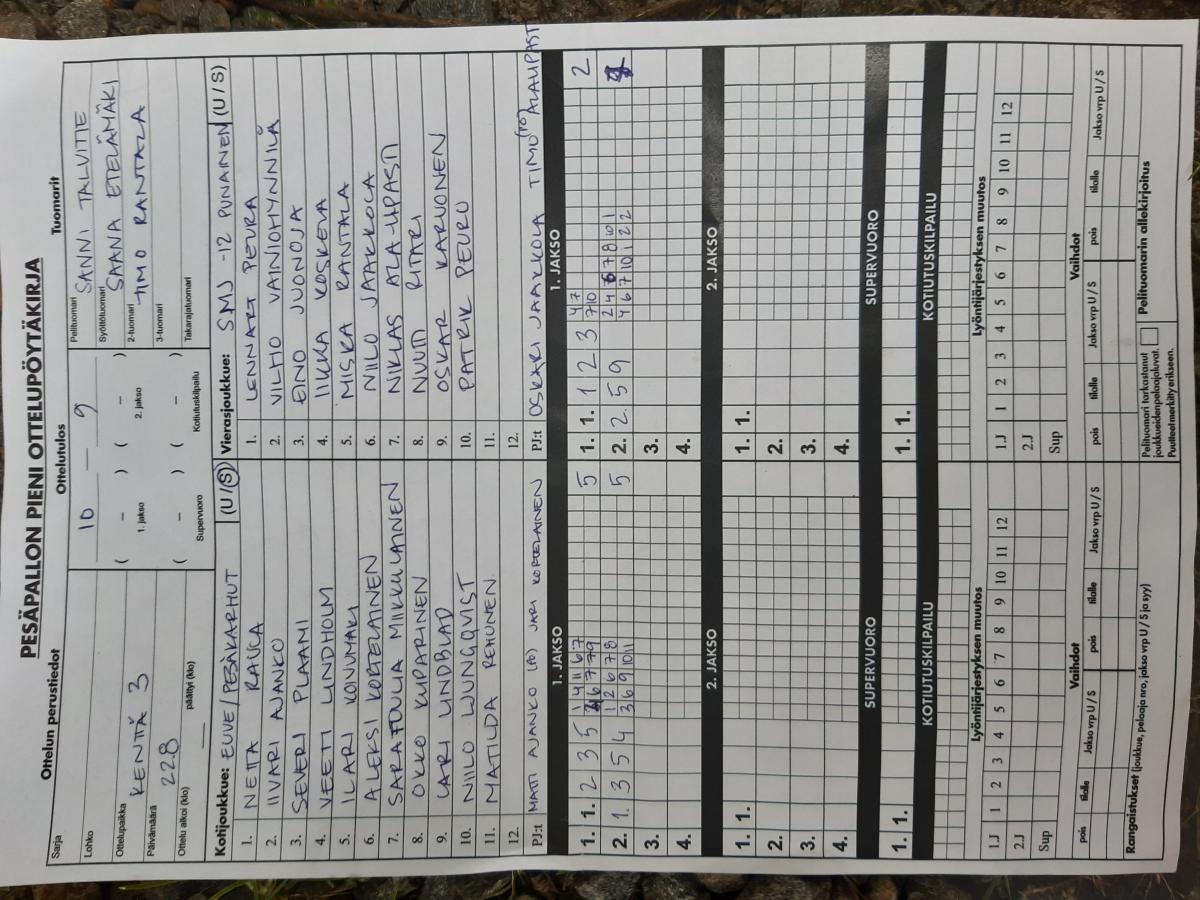 PESÄPALLON PIENI OTTELUPÖYTÄKIRJA
Ottelun perustiedot
Ottelutulos
Tuomarit
Sarja
Lohko
Ottelupaikka
KENTTÄ 3
Päivämäärä
22.8
Ottelu alkoi (klo)
päättyi (klo)
10 — 9
( – ) ( – )
1. jakso 2. jakso
( – ) ( – )
Supervuoro Kotiutuskilpailu
Pelituomari SANNI TALVITIE
Syöttötuomari SAANA ETELÄMÄKI
2-tuomari TIMO RANTALA
3-tuomari
Takarajatuomari
Kotijoukkue: EUVE/PESÄKARHUT (U/S)
1. NETTA RAUCA
2. IIVARI AJANKO
3. SEVERI PLAAMI
4. VEETI LINDHOLM
5. ILARI KOIVUMÄKI
6. ALEKSI KORTELAINEN
7. SARA TUULIA MIIKKULAINEN
8. OKKO KUPARINEN
9. LARI LINDBLAD
10. NIILO LJUNGQVIST
11. MATILDA REHUNEN
12.
PJ:t MATTI AJANKO (PO) JARI KORTELAINEN
Vierasjoukkue: SMJ -12 PUNAINEN (U/S)
1. LENNART PEURA
2. VILHO VAINIOHYNNILÄ
3. EINO JUONOJA
4. IIKKA KOSKELA
5. MISKA RANTALA
6. NIILO JAAKKOLA
7. NIKLAS ALA-UPASTI
8. NUUTI RITARI
9. OSKAR KARVONEN
10. PATRIK PEURU
11.
12.
PJ:t OSKARI JAAKKOLA TIMO (PO) ALAUPASTI
1. JAKSO
1. JAKSO
1. 1. 2 3 5 5
2. 1. 3 5 4 5
3.
4.
1. 1. 1 2 3 2
2. 2. 5 9
3.
4.
2. JAKSO
2. JAKSO
1. 1.
2.
3.
4.
1. 1.
2.
3.
4.
SUPERVUORO
SUPERVUORO
1. 1.
1. 1.
KOTIUTUSKILPAILU
KOTIUTUSKILPAILU
Lyöntijärjestyksen muutos
Lyöntijärjestyksen muutos
1.J 1 2 3 4 5 6 7 8 9 10 11 12
2.J
Sup
1.J 1 2 3 4 5 6 7 8 9 10 11 12
2.J
Sup
Vaihdot
Vaihdot
pois tilalle Jakso vrp U / S pois tilalle Jakso vrp U / S
pois tilalle Jakso vrp U / S pois tilalle Jakso vrp U / S
Rangaistukset (joukkue, pelaaja nro, jakso vrp U / S ja syy)
Pelituomari tarkastanut
joukkueidenpelaajaluvat.
Puutteet merkitty erikseen.
Pelituomarin allekirjoitus